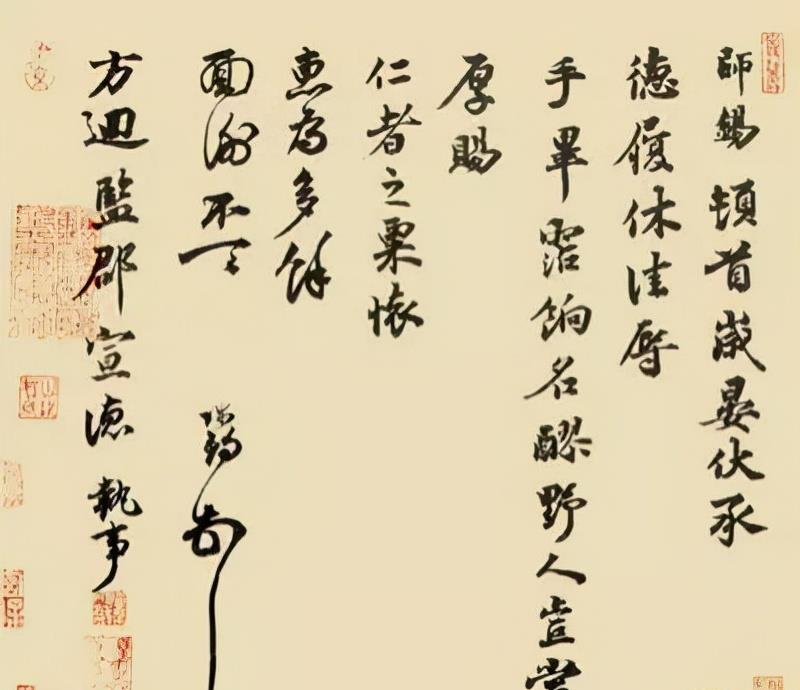 師錫頓首歲晏伏承
德履休佳辱
手畢寵餉名醪野人豈當
厚賜
仁者之粟懷
惠為多餘
面謝不一一
師錫頓首
方迴監郡宣德執事